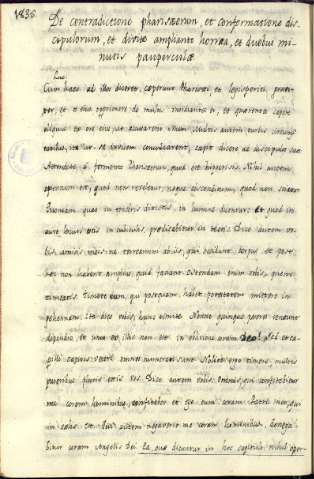 1836
De contradictione phariseorum, et confirmatione dis-
cipulorum, et divite ampliante horrea, et duobus mi-
nutis pauperculæ
Luc.
Cum haec ad illos diceret, coeperunt Pharisaei et legisperiti, graviter
et os ejus opprimere de multis insidiantes ei, et quaerentes capere
aliquid ex ore ejus ut accusarent eum, multis autem turbis circums-
tantibus, ita ut se invicem conculcarent, coepit dicere ad discipulos suos
Attendite a fermento Phariseorum, quod est hypocrisis. Nihil autem
opertum est, quod non reveletur, neque absconditum, quod non sciatur
Quoniam quae in tenebris dixistis, in lumine dicentur: et quod in
aurem locuti estis in cubiculis, praedicabitur in tectis. Dico autem vo-
bis amicis meis: ne terreamini ab his, qui occidunt corpus, et post
haec non habent amplius, quid faciant. Ostendam autem vobis, quem
timeatis. Timete eum, qui postquam habet potestatem mittere in
gehennam. Ita dico vobis, hunc timite. Nonne quinque passeres veneunt
dipondio, et unus ex illis non est in oblivione coram Deo? Sed et ca-
pilli capitis vestri omnes numerati sunt. Nolite ergo timere, multis
passeribus pluris estis vos. Dico autem vobis: Omnis, qui confitebitur
me coram hominibus, confitebor et ego eum coram Patre meo, qui
in coelis est. Qui autem negaverit me coram hominibus, negabi-
bitur coram Angelis Dei. Ea quae dicuntur in hoc capitulo nihil oper-